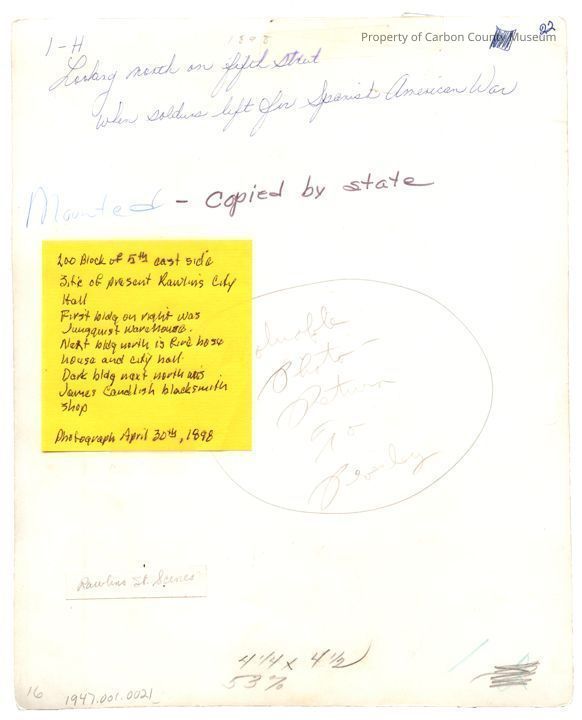 1898
22
Property of Carbon County Museum
1-H
Looking north on fifth Street
When soldiers left for Spanish American War
Mounted - Copied by state
200 Block of 5th east side
Site of present Rawlins City
Hall
First bldg on right was
Junquist warehouse.
Next bldg north is fire hose
house and city hall.
Dark bldg next north was
James Candlish blacksmith
shop
Photograph April 30th, 1898
Valuable
Photo -
Return
To
Beverley
Rawlins St. Scenes
4 1/4 x 4 1/2
53%
16
1947.001.0021